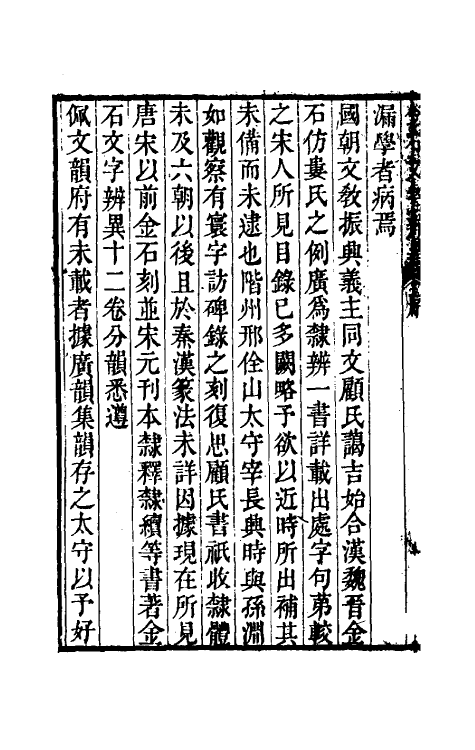 漏學者病焉
國朝文敎振興義主同文顧氏藹吉始合漢魏晉金
石仿婁氏之例廣爲隸辨一書詳載出處字句苐較
之宋人所見目錄已多闕略予欲以近時所出補其
未備而未逮也階州邢佺山太守宰長興時與孫淵
如觀察有寰宇訪碑錄之刻復思顧氏書祇收隸體
未及六朝以後且於秦漢篆法未詳因據現在所見
唐宋以前金石刻並宋元刊本隸釋隸續等書著金
石文字辨異十二卷分韻悉遵
佩文韻府有未載者據廣韻集韻存之太守以予好